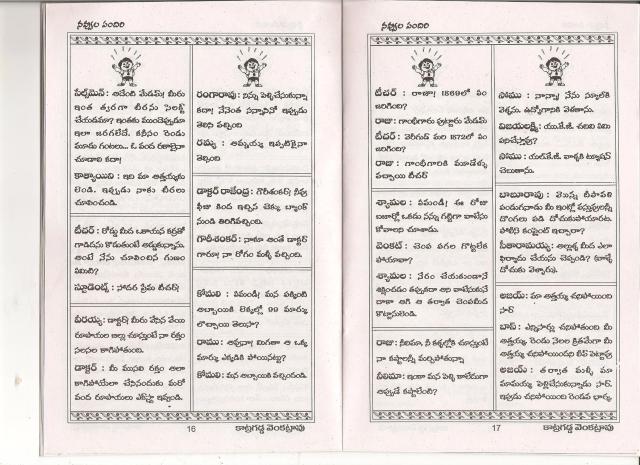 నవ్వుల పందిరి
సేల్స్‌మెన్ : అదేంటి మేడమ్! మీరు
ఇంత త్వరగా చీరను సెలెక్ట్
చేయడమా? ఇంతకు ముందెప్పుడూ
ఇలా జరగలేదే. కనీసం రెండు
మూడు గంటలు... ఓ వంద రకాలైనా
చూడాలి కదా!
కాత్యాయిని : ఇది మా అత్తయ్యకు
లెండి. ఇప్పుడు నాకు చీరలు
చూపించండి.
టీచర్ : రోడ్డు మీద ఒకాయన కర్రతో
గాడిదను కొడుతుంటే అడ్డుకున్నాను.
అంటే నేను చూపించిన గుణం
ఏమిటి?
స్టూడెంట్స్ : సోదర ప్రేమ టీచర్!
వీరయ్య: డాక్టర్! మీరు వేసిన వేయి
రూపాయల బిల్లు చూస్తుంటే నా రక్తం
సలసల కాగిపోతుంది.
డాక్టర్ : మీ ముసలి రక్తం అలా
కాగిపోయేలా చేసినందుకు మరో
వంద రూపాయలు ఎక్‌స్ట్రా ఇవ్వండి.
రంగారావు: నిన్ను పెళ్ళిచేసుకున్నా
కదా! నేనెంత సన్నాసినో ఇప్పుడు
తెలిసి వచ్చింది
రమ్య : అమ్మయ్య ఇప్పటికైనా
తెలిసింది
డాక్టర్ రాజేంద్ర: గౌరీశంకర్! నీవు
ఫీజు కింద ఇచ్చిన చెక్కు బ్యాంక్
నుండి తిరిగివచ్చింది.
గౌరీశంకర్: నాకూ అంతే డాక్టర్
గారూ! నా రోగం మళ్ళీ వచ్చింది.
కోమలి : ఏమండీ! మన పక్కింటి
అబ్బాయికి లెక్కల్లో 99 మార్కు
లొచ్చాయి తెలుసా?
రాము : అవునా! మిగతా ఆ ఒక్క
మార్కు ఎక్కడికి పోయినట్లు?
కోమలి: మన అబ్బాయికి వచ్చిందండి.
16
కాట్రగడ్డ వెంకట్రావు
నవ్వుల పందిరి
టీచర్ : రాజూ! 1869లో ఏం
జరిగింది?
రాజు: గాంధీగారు పుట్టారు మేడమ్
టీచర్ : వెరీగుడ్ మరి 1872లో ఏం
జరిగింది?
రాజు : గాంధీగారికి మూడేళ్ళు
వచ్చాయి టీచర్
శ్యామల : ఏమండీ! ఈ రోజు
బజార్లో ఒకడు నన్ను గట్టిగా వాటేసు
కోవాలని చూశాడు.
వెంకట్ : చెంప పగల గొట్టలేక
పోయావా?
శ్యామల : నేరం చేయకుండానే
శిక్షించడం తప్పుకదా అని వాటేసుకునే
దాకా ఆగి ఆ తర్వాత చెంపమీద
కొట్టానులెండి.
రాజు: నీలిమా, నీ కళ్ళల్లోకి చూస్తుంటే
నా కష్టాలన్నీ మర్చిపోతున్నా
నీలిమా: ఇంకా మన పెళ్ళి కాలేదుగా
అప్పుడే కష్టాలేంటి?
సోము : నాన్నా! నేను స్కూల్‌కి
వెళ్ళను. ఉద్యోగానికి వెళతాను.
విజయలక్ష్మి: యు.కె.జీ. చదివి ఏమి
పనిచేస్తావు?
సోము : యల్.కే.జీ. వాళ్ళకి ట్యూషన్
చెబుతాను.
బాబూరావు : మొన్న దీపావళి
పండుగనాడు మీ ఇంట్లో వస్తువులన్నీ
దొంగలు పడి దోచుకుపోయారట.
పోలీస్ కంప్లైంట్ ఇచ్చారా?
సీతారామయ్య: అల్లుళ్ళ మీద ఎలా
ఫిర్యాదు చేయను చెప్పండి? (వాళ్ళే
దోచుకు వెళ్ళారు).
అజయ్: మా అత్తయ్య చనిపోయింది
సార్
బాస్: ఎన్నిసార్లు చనిపోతుంది మీ
అత్తయ్య రెండు నెలల క్రితమేగా మీ
అత్తయ్య చనిపోయిందని లీవ్ పెట్టావు
అజయ్ : తర్వాత మళ్ళీ మా
మామయ్య పెళ్ళిచేసుకున్నాడు సార్.
ఇప్పుడు చనిపోయింది రెండవ భార్య.
17
కాట్రగడ్డ వెంకట్రావు